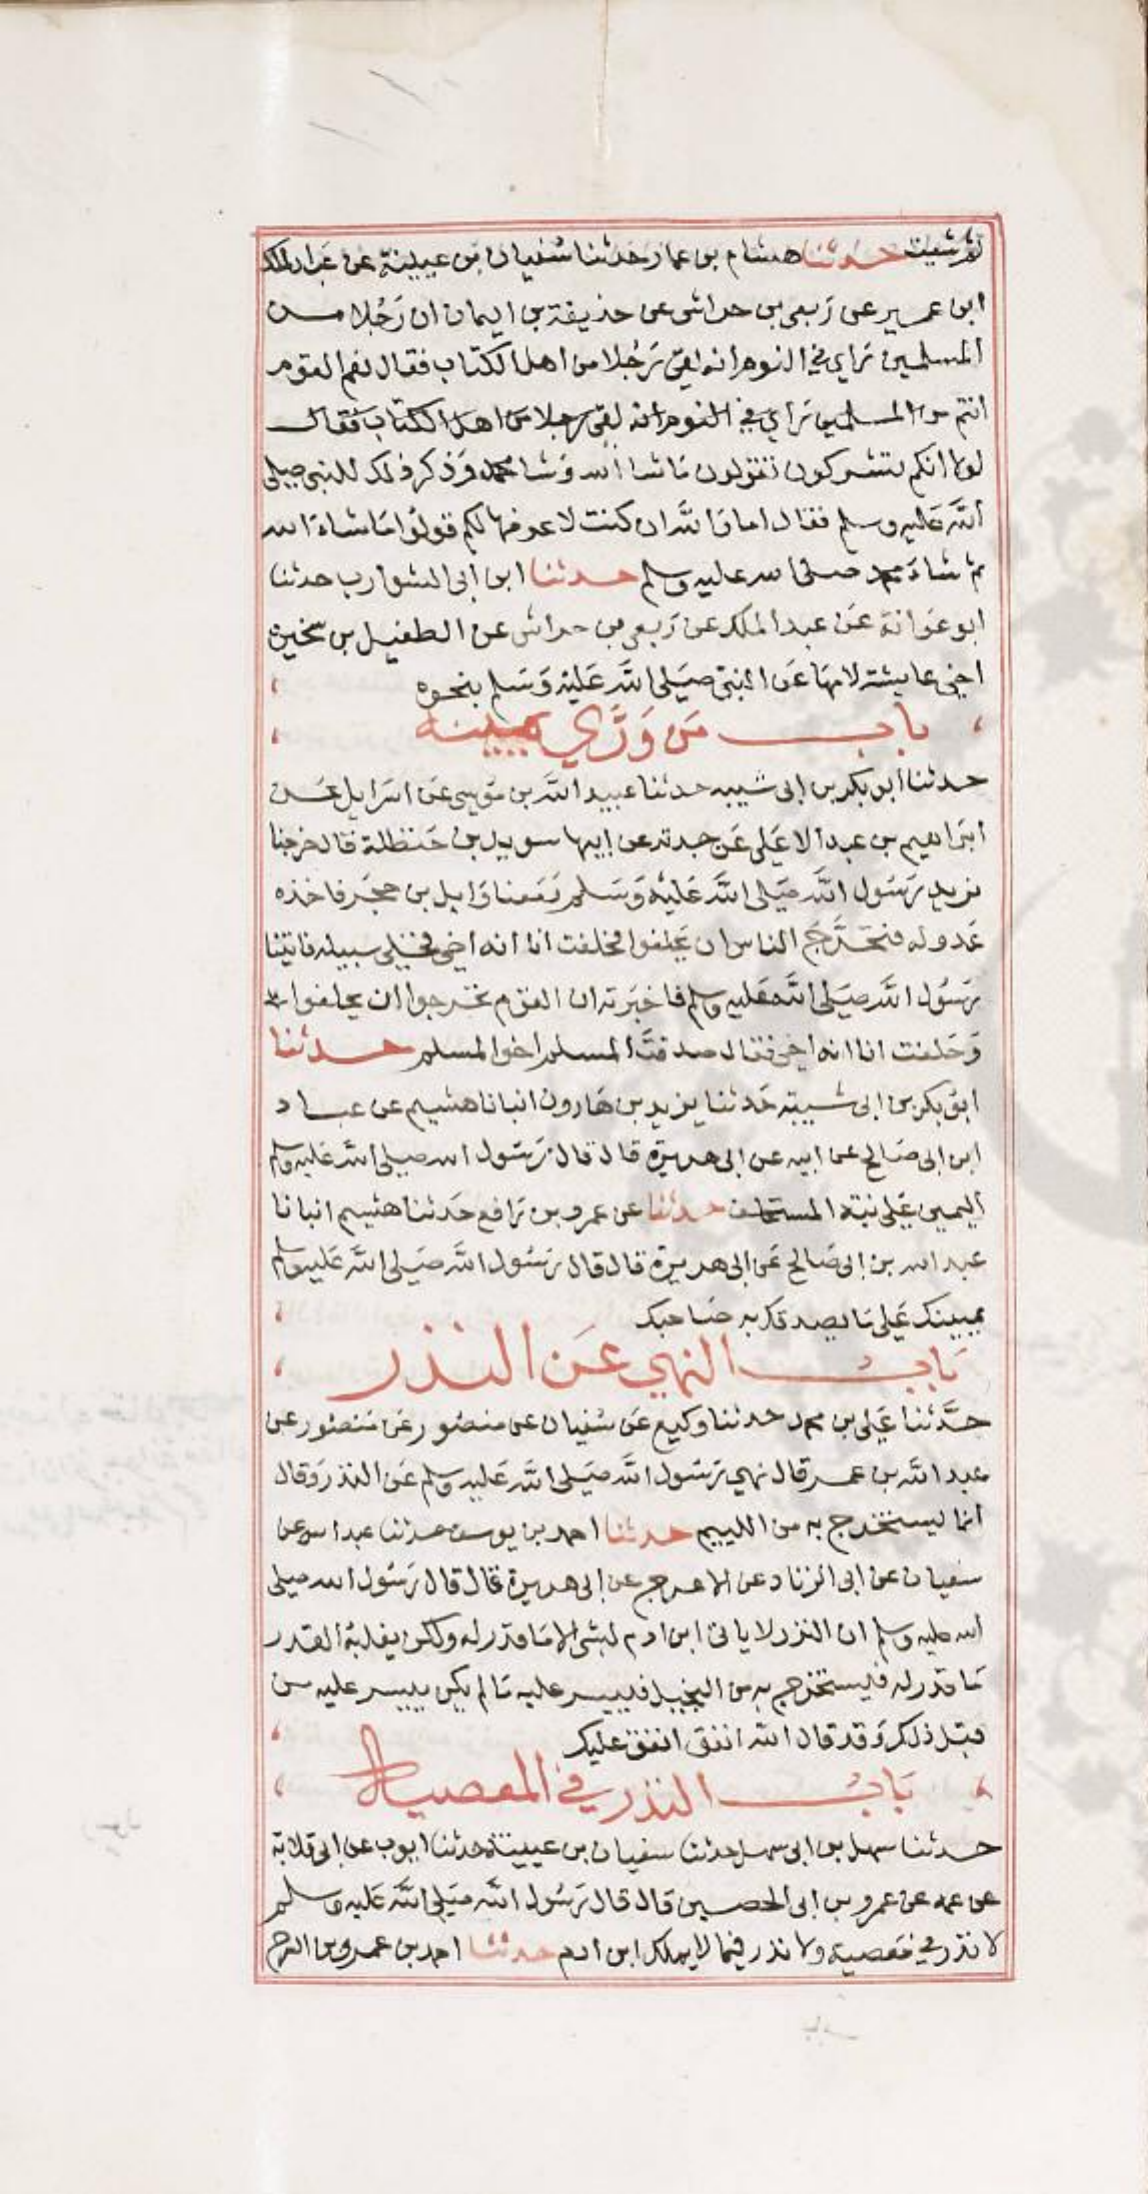 ثم شيت حدثنا هشام بن عمار حدثنا سفيان بن عيينة عن عبد الملك
ابن عمير عن ربعي بن حراش عن حذيفة بن اليمان ان رجلا من
المسلمين راي في النوم انه لقي رجلا من اهل الكتاب فقال نعم القوم
انتم من المسلمين راي في النوم انه لقي رجلا من اهل الكتاب فقال
لولا انكم تشركون تقولون ما شا الله وشا محمد وذكر ذلك للنبي صلى
الله عليه وسلم فقال اما والله ان كنت لاعرفها لكم قولوا ما شاء الله
ثم شاء محمد صلى الله عليه وسلم حدثنا ابن ابي الشوارب حدثنا
ابو عوانة عن عبد الملك عن ربعي بن حراش عن الطفيل بن سخبرة
اخي عايشة لامها عن النبي صلى الله عليه وسلم بنحوه
باب من ورى يمينه
حدثنا ابو بكر بن ابي شيبه حدثنا عبيد الله بن موسي عن اسرايل عن
ابراهيم بن عبد الاعلي عن جدته عن ابيها سويد بن حنظلة قال خرجنا
نريد رسول الله صلى الله عليه وسلم ومعنا وايل بن حجر فاخذه
عدو له فتحرج الناس ان يحلفوا فحلفت انا انه اخي فخلي سبيله فاتينا
رسول الله صلى الله عليه وسلم فاخبرته ان القوم تحرجوا ان يحلفوا
وحلفت انا انه اخي فقال صدقت المسلم اخو المسلم حدثنا
ابو بكر بن ابي شيبة حدثنا يزيد بن هارون انبانا هشيم عن عباد
ابن ابي صالح عن ابيه عن ابي هريرة قال قال رسول الله صلى الله عليه وسلم
اليمين علي نية المستحلف حدثنا عن عمرو بن رافع حدثنا هشيم انبانا
عبد الله بن ابي صالح عن ابي هريرة قال قال رسول الله صلى الله عليه وسلم
يمينك علي ما يصدقك به صاحبك
باب النهي عن النذر
حدثنا علي بن محمد حدثنا وكيع عن سفيان عن منصور عن منصور عن
عبد الله بن عمر قال نهي رسول الله صلى الله عليه وسلم عن النذر وقال
انما يستخرج به من الليم حدثنا احمد بن يوسف حدثنا عبد الله عن
سفيان عن ابي الزناد عن الاعرج عن ابي هريرة قال قال رسول الله صلى
الله عليه وسلم ان النذر لا ياتي ابن ادم لشي الا ما قدر له ولكن يغلبه القدر
ما قدر له فيستخرج به من البخيل فييسر عليه ما لم يكن ييسر عليه من
قبل ذلك وقد قال الله انفق انفق عليك
باب النذر في المعصية
حدثنا سهل بن ابي سهل حدثنا سفيان بن عيينة حدثنا ايوب عن ابي قلابة
عن عمه عن عمرو بن ابي الحصين قال قال رسول الله صلى الله عليه وسلم
لا نذر في معصية ولا نذر فيما لا يملك ابن ادم حدثنا احمد بن عمرو بن السرح